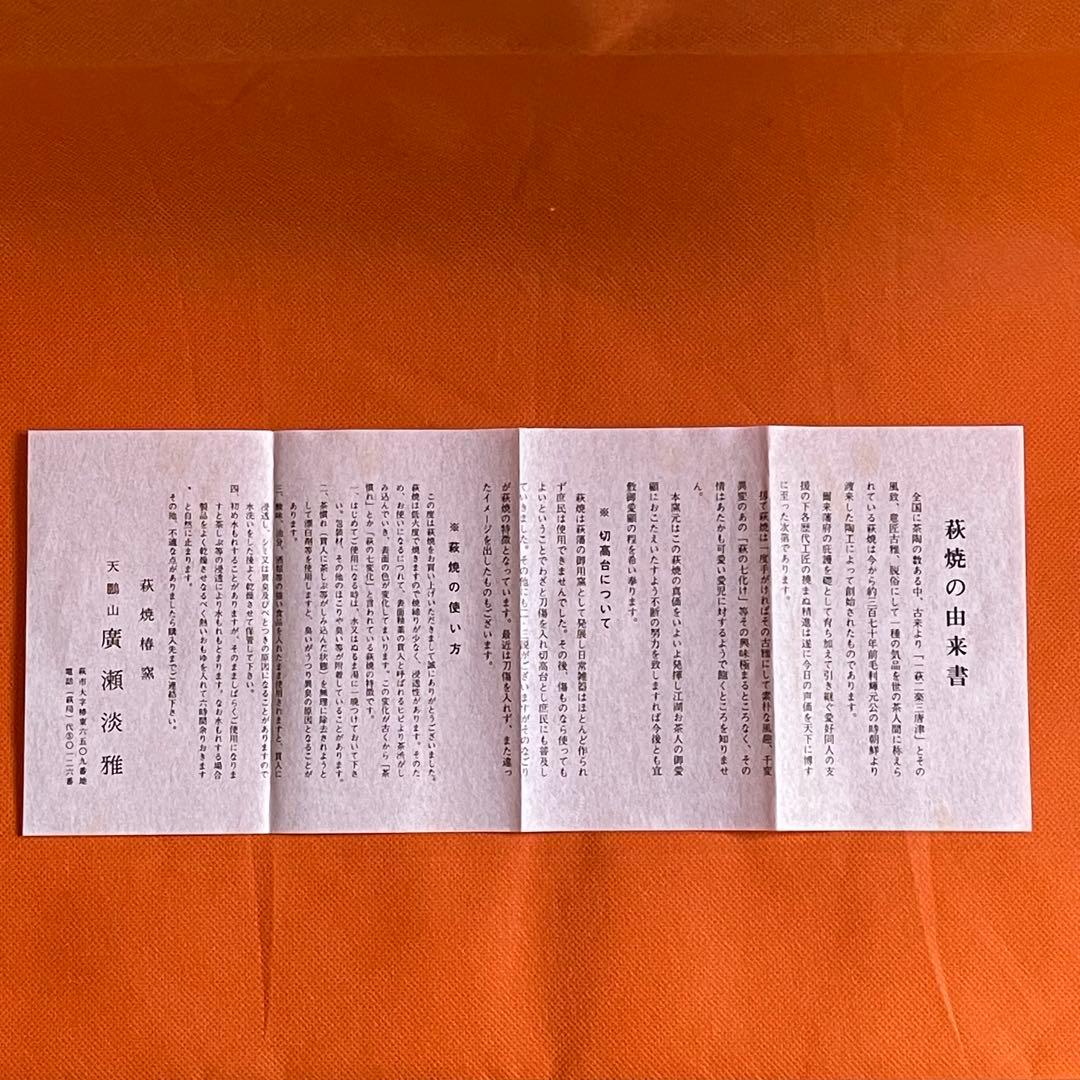 萩焼の由来書
全国に茶陶の数ある中、古来より「一萩二楽三唐津」とその
風致、意匠古雅、脱俗にして一種の気品を世の茶人間に称えら
れている萩焼は今から約三百七十年前毛利輝元公の時朝鮮より
渡来した陶工によって創始されたものであります。
爾来藩府の庇護を礎として育ち加えて引き継ぐ愛好同人の支
援の下各歴代工匠の撓まぬ精進は遂に今日の声価を天下に博す
に至った次第であります。
扨て萩焼は一度手がければその古雅にして素朴な風趣、千変
異変のあの「萩の七化け」等その興味極まるところなく、その
情はあたかも可愛い愛児に対するよう飽くところを知りませ
ん。
本窯元はこの萩焼の真価をいよいよ発揮し江湖お茶人の御愛
顧におこたえいたすよう不断の努力を致しますれば今後とも宜
敷御愛顧の程を希い奉ります。
※切高台について
萩焼は萩藩の御用窯として発展し日常雑器はほとんど作られ
ず庶民は使用できませんでした。その後、傷ものなら使っても
よいということでわざと刀傷を入れ切高台とし庶民にも普及し
ていきました。その他にも二・三説がございますがそのなごり
が萩焼の特徴となっています。最近は刀傷を入れず、また違っ
たイメージを出したものもございます。
※萩焼の使い方
この度は萩焼をお買い上げいただきまして誠にありがとうございました。
萩焼は低火度で焼きますので焼締りが少なく、浸透性があります。そのた
め、お使いになるにつれて、表面釉薬の貫入と呼ばれるヒビより茶渋がし
み込んでいき、表面の色が変化してまいります。この変化が古くから「茶
慣れ」とか「萩の七変化」と言われている萩焼の特徴です。
一、はじめてご使用になる時は、水又はぬるま湯に一晩つけておいて下さ
い。包装材、その他のほこりや臭い等が附着していることがあります。
二、茶慣れ（貫入に茶しぶ等がしみ込んだ状態）を無理に除去されようと
して漂白剤等を使用しますと、臭いがうつり異臭の原因となることが
あります。
三、酸味、油分、酒類等の強い食品を入れたまま使用されますと、貫入に
浸透し、シミ又は異臭及びべとつきの原因になることがありますので
水洗いをした後よく乾燥させて保管して下さい。
四、初め水もれすることがありますが、そのまましばらくご使用になりま
すと茶しぶ等の浸透により水もれもとまります。なお水もれする場合
製品をよく乾燥させなるべく熱いおもゆを入れて六時間余りおきます
と自然に止まります。
その他、不適な点がありましたら購入先までご連絡下さい。
萩焼椿窯
天鵬山 廣瀬淡雅
萩市大字椿東六五〇九番地
電話（萩局）